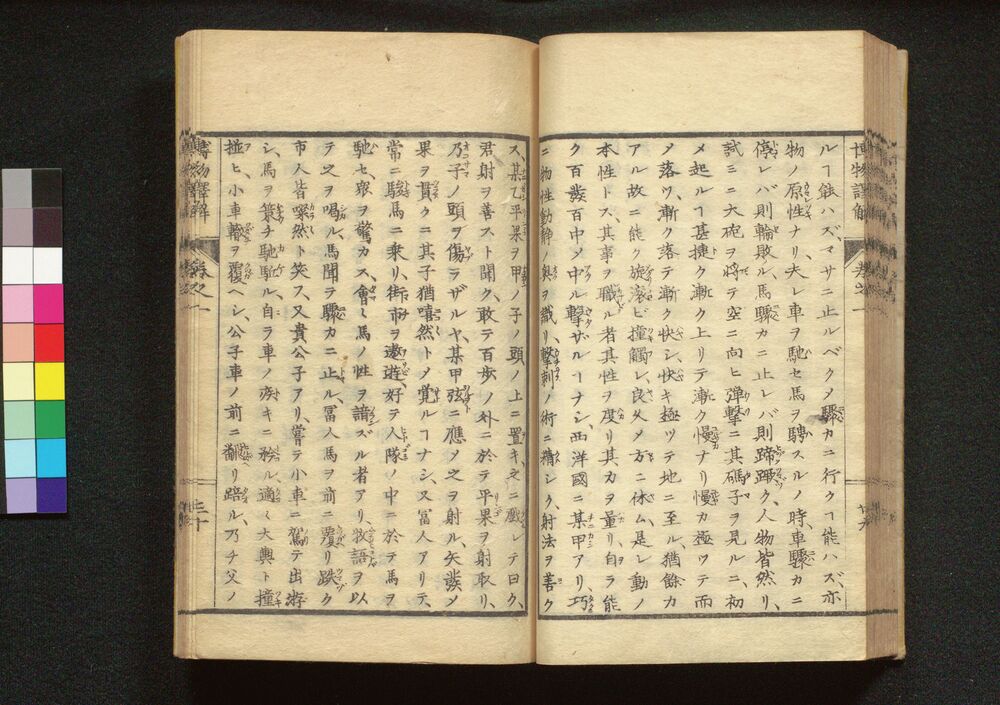 博物語解
卷之一
十九
ルヿ能ハズ、マサニ止ルベクメ驟カニ行クヿ能ハズ、亦
物ノ原性ナリ、夫レ車ヲ馳セ馬ヲ騁スルノ時、車驟カニ
停レバ則輪敗ル、馬驟カニ止レバ則蹄躓ク、人物皆然リ、
試ミニ大砲ヲ将テ空ニ向ヒ弾撃ニ其碼子ヲ見ルニ、初
メ起ルヿ甚捷ク漸ク上リテ漸ク慢ナリ慢カ極ツテ而
メ落ツ、漸ク落テ漸ク快シ、快キ極ツテ地ニ至ル猶餘力
アル故ニ能ク旋滚ビ撞觸レ、良久メ方ニ休ム、是レ動ノ
本性トス、其事ヲ職ル者其性ヲ度リ其力ヲ量リ、自ラ能
ク百發百中メ中ル撃ザルヿナシ、西洋國ニ某甲アリ、巧
ニ物性動静ノ奥ヲ識リ、撃刺ノ術ニ精シク、射法ヲ善ク
ス、某乙平果ヲ甲ノ子ノ頭ノ上ニ置キ、之ニ戯レテ曰ク、
君射ヲ善スト聞ク、敢テ百歩ノ外ニ於テ平果ヲ射取リ、
乃子ノ頭ヲ傷ラザルヤ、某甲弦ニ應メ之ヲ射ル、矢發メ
果ヲ貫クニ其子猶嘻然トメ覚ルヿナシ、又冨人アリテ、
常ニ駿馬ニ乗リ、街市ヲ遨遊、好テ人隊ノ中ニ於テ馬ヲ
馳セ、衆ヲ驚カス、會ミ馬ノ性ヲ諳ズル者アリ、牧語ヲ以
テ之ヲ喝ル、馬聞テ驟カニ止ル、冨人馬ヲ前ニ覆リ跌ク
市人皆樂然ト笑ス、又貴公子アリ、嘗テ小車ニ駕テ出游
シ、馬ヲ策チ馳馳ル、自ラ車ノ疾キニ矜ル、適ミ大輿ト撞
碰ヒ、小車輪ヲ覆ヘシ、公子車ノ前ニ翻リ踣ル、乃チ父ノ
卷之一
二十